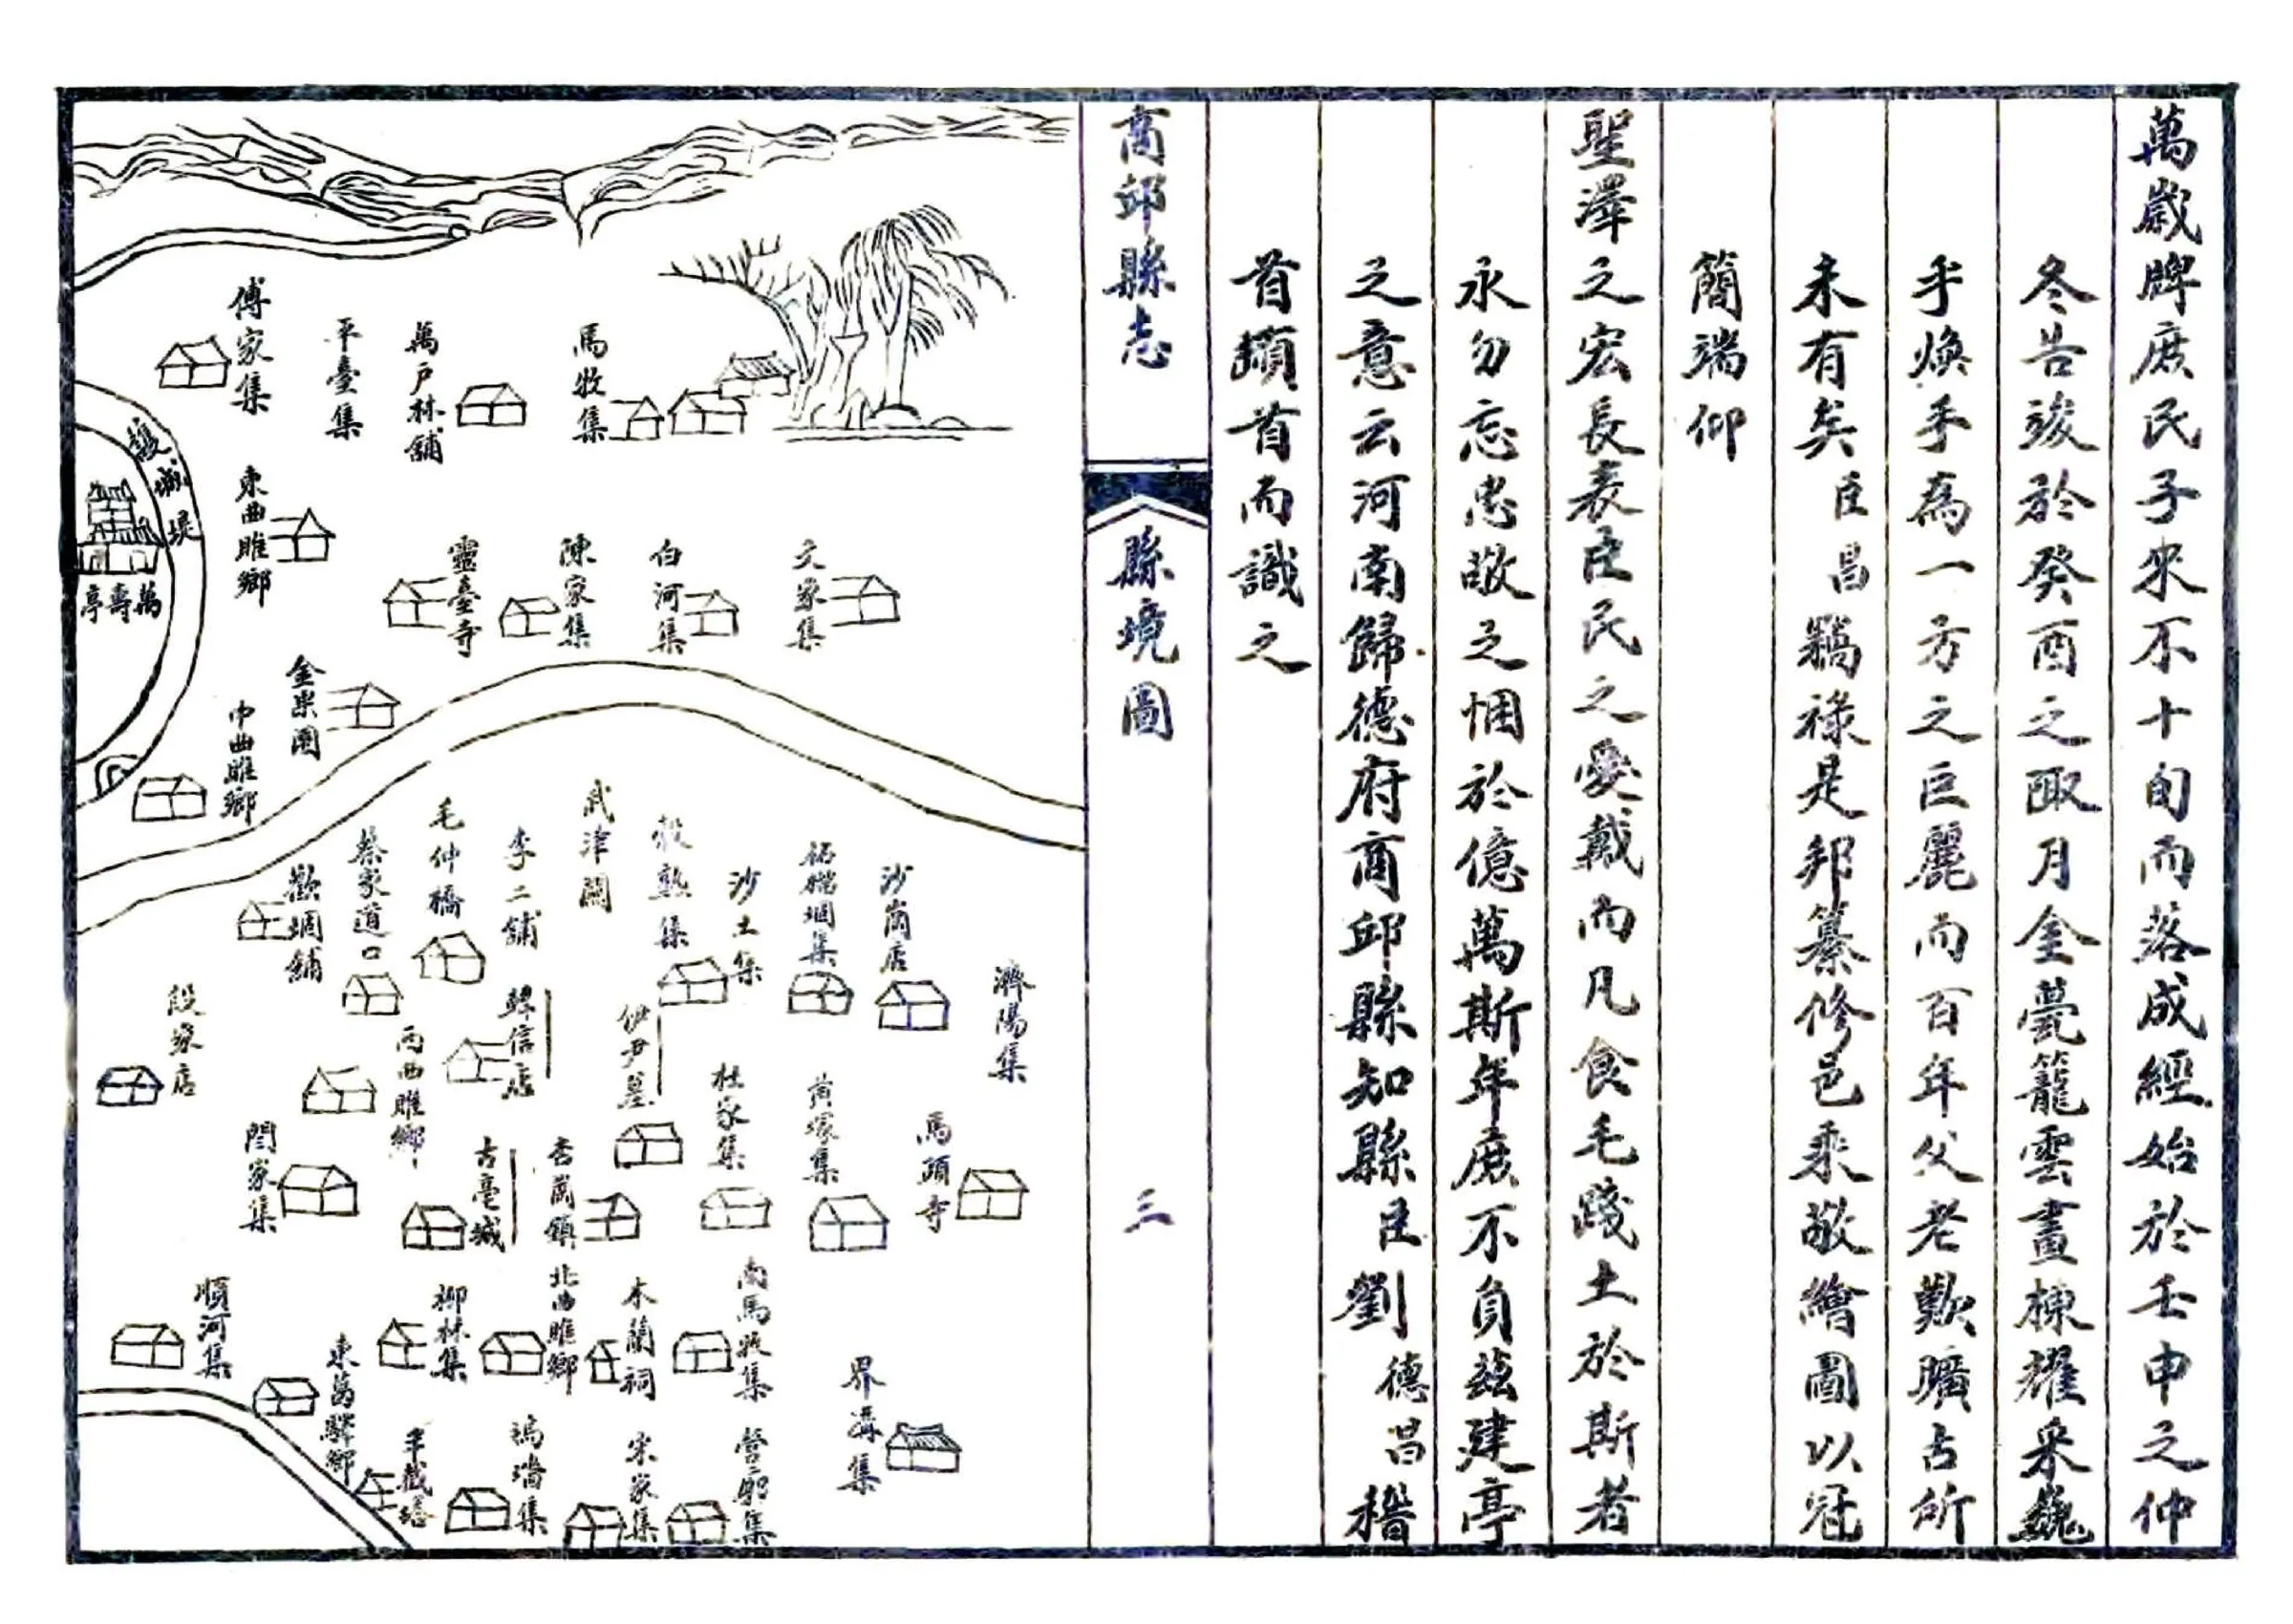 萬歲牌庶民子來不十旬而落成經始於壬申之仲
冬告竣於癸酉之陬月金甍籠雲畫棟耀采巍
乎煥乎為一方之巨麗而百年父老歎曠古所
未有矣臣昌竊祿是邦纂修邑乘敬繪圖以冠
簡端仰
聖澤之宏長表臣民之愛戴而凡食毛踐土於斯者
永勿忘忠敬之悃於億萬斯年庶不負茲建亭
之意云河南歸德府商邱縣知縣臣劉德昌稽
首頓首而識之
商邱縣志
縣境圖
三
馬牧集
萬户林舖
平臺集
傅家集
護城堤
萬壽亭
東曲雎鄉
文家集
白河集
陳家集
靈臺寺
金果園
中曲雎鄉
濟陽集
沙崗店
沙土集
穀熟集
武津關
李二舖
毛仲橋
蔡家道口
歡堌舖
段家店
伊尹墓
韓信店
西曲雎鄉
馬頭寺
黄塚集
杜家集
杏崗鎮
古亳城
閆家集
南馬牧集
木蘭祠
北曲雎鄉
柳林集
順河集
界溝集
營廓集
宋家集
塢墻集
半截塔
東葛驛鄉